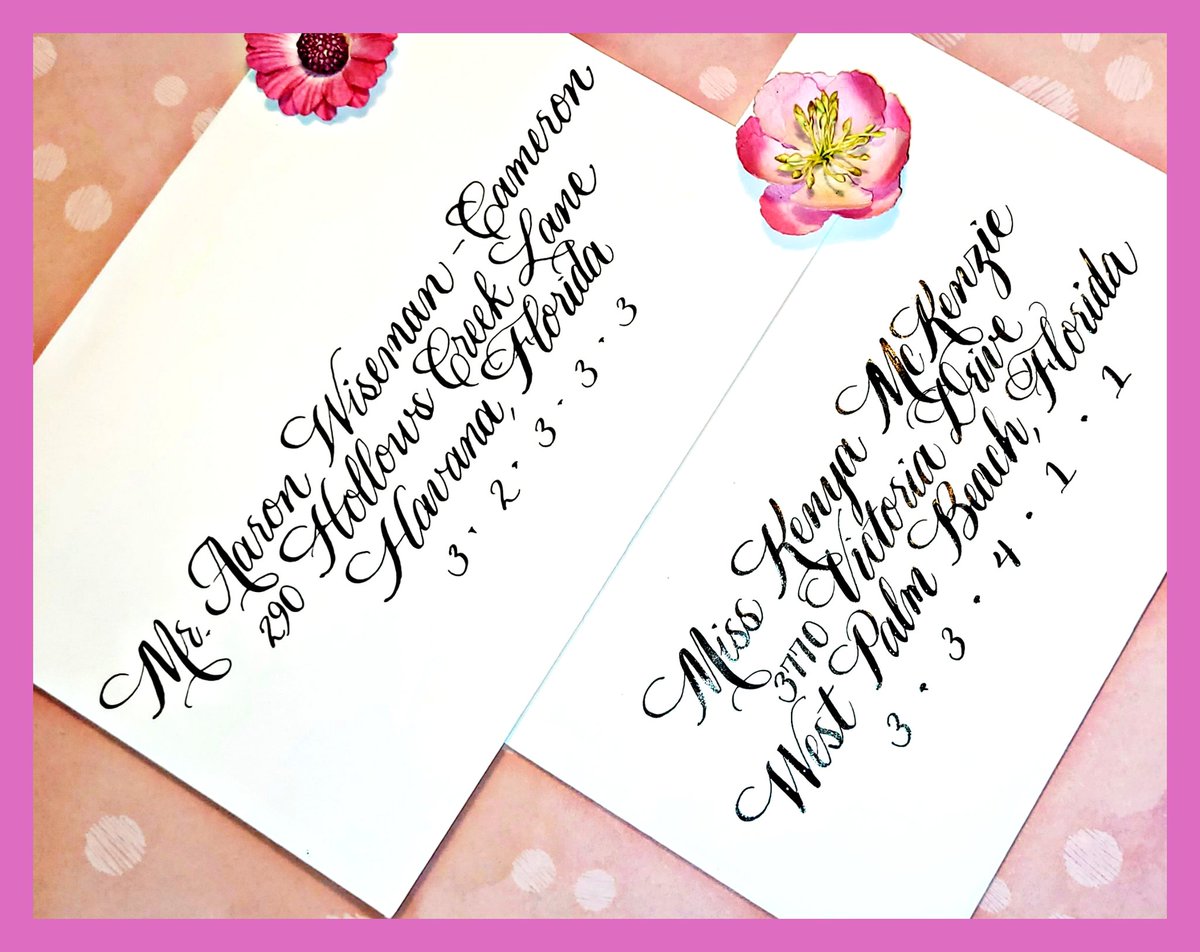 Mr. Aaron Wiseman-Cameron
290 Hollows Creek Lane
Havana, Florida
3 · 2 · 3 · 3 · 3
Miss Kenya McKenzie
3770 Victoria Drive
West Palm Beach, Florida
3 · 3 · 4 · 1 · 1